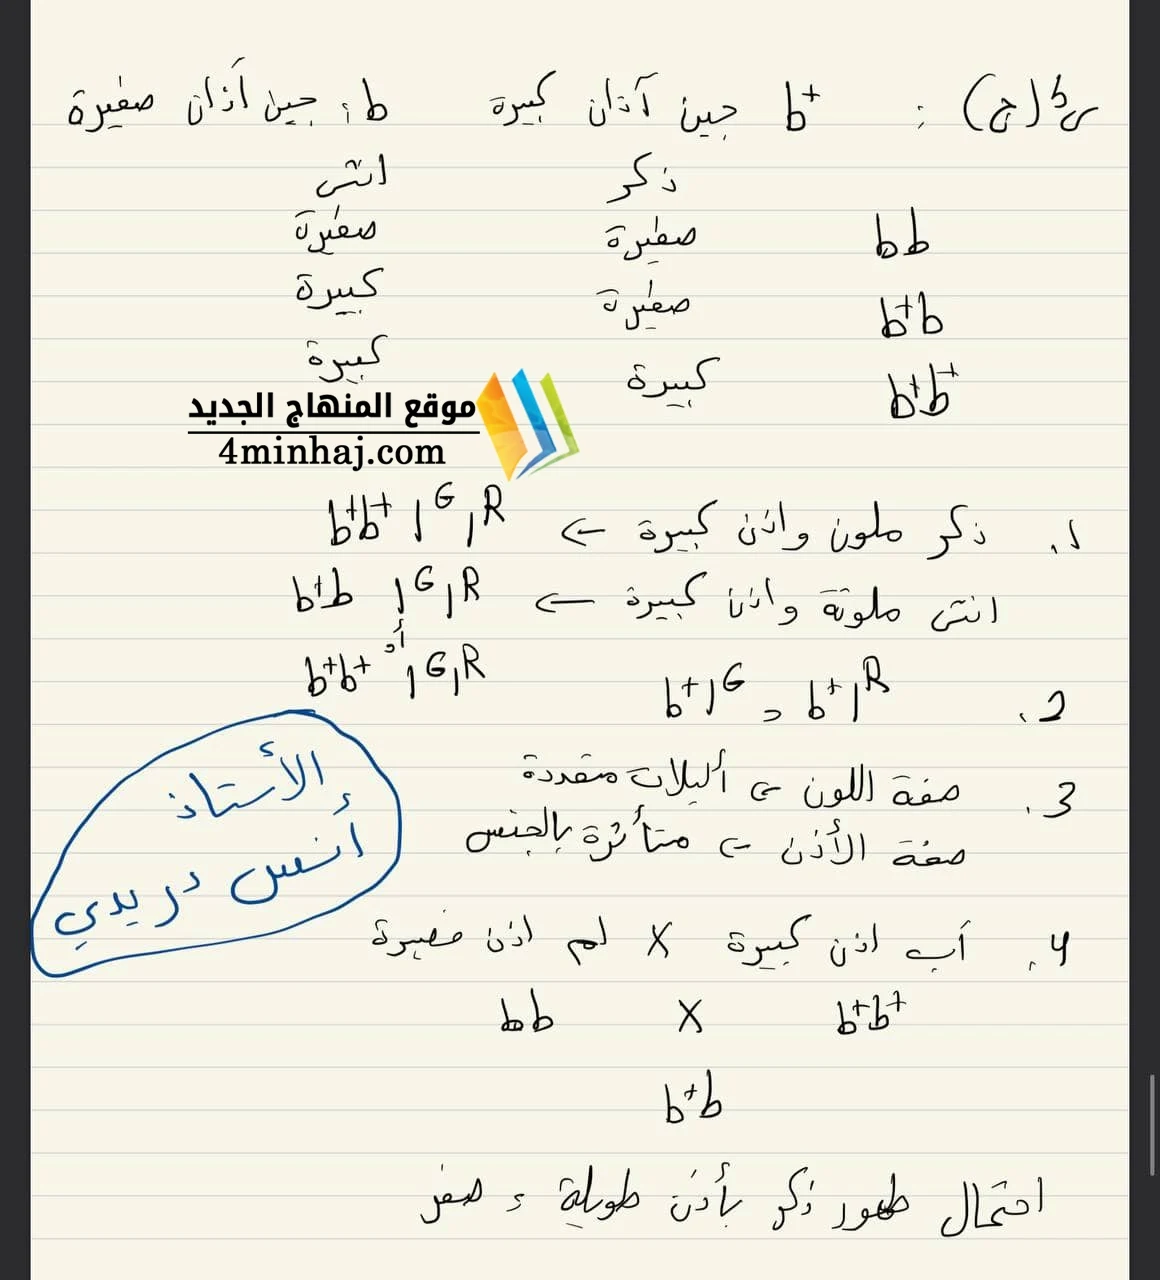 س5 (ج) : b+ جين آذان كبيرة b : جين أذان صغيرة
ذكر انثى
bb صغيرة صغيرة
b+b صغيرة كبيرة
b+b+ كبيرة كبيرة
موقع المنهاج الجديد
4minhaj.com
1. ذكر ملون واذن كبيرة ← b+b+ I^G I^R
انثى ملونة واذن كبيرة ← b+b I^G I^R
أو
b+b+ I^G I^R
2. b+I^G , b+I^R
3. صفة اللون ← أليلات متعددة
صفة الأذن ← متأثرة بالجنس
الأستاذ
أنس دريدي
4. أب اذن كبيرة X لم اذن صغيرة
b+b+ X bb
b+b
احتمال ظهور ذكر بأذن طويلة : صفر